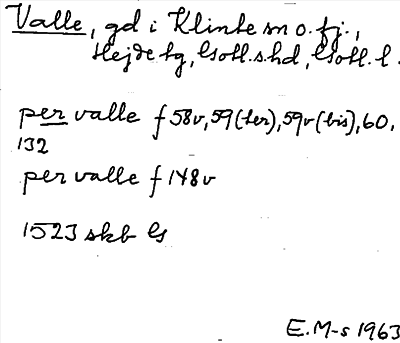 Valle, gd i Klinte sn o. fj.,
Hejde tg, Gotl. s. hd, Gotl. l.
per valle f 58v, 59 (ter), 59v (bis), 60,
132
per valle f 148v
1523 skb G
E. M-s 1963